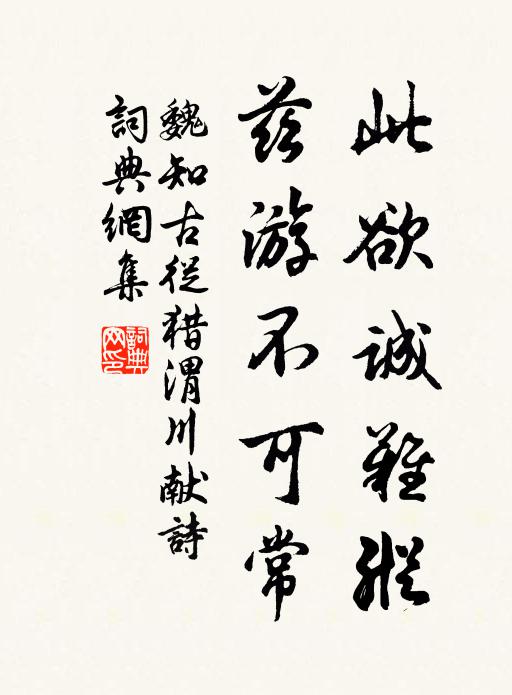 此欲誠難縱
兹游不可常
魏知古從猎渭川献詩
詞典網集
詞典網印